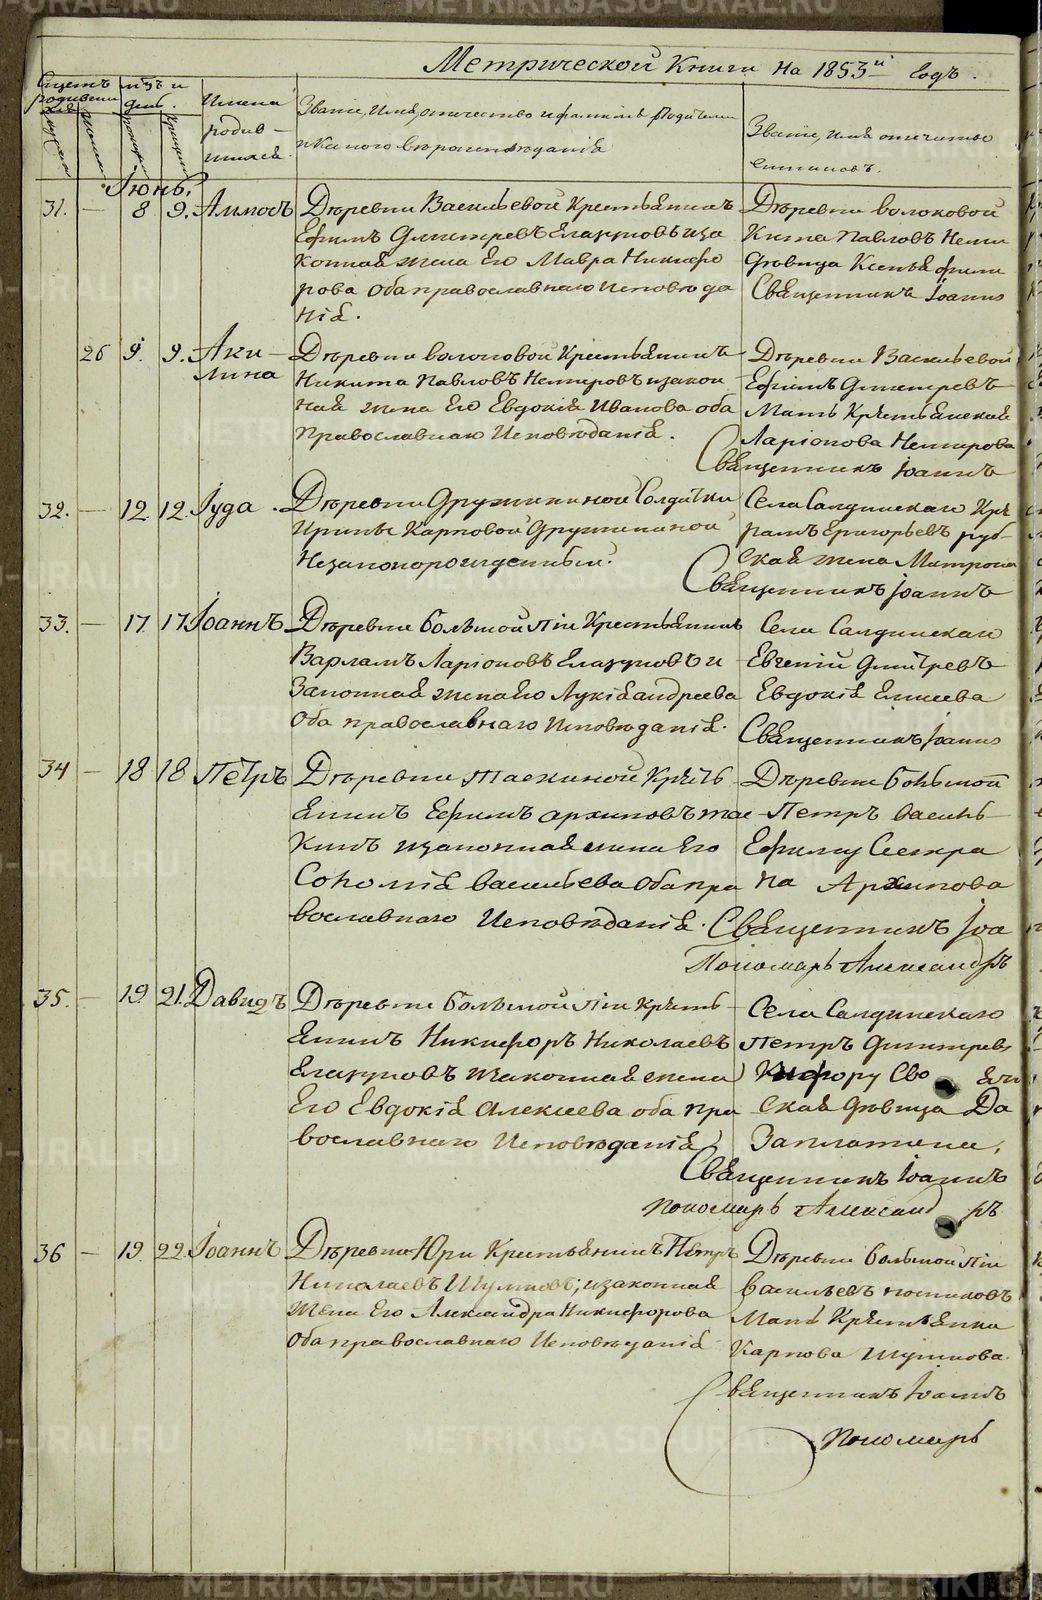 Метрической Книги на 1853й Годъ.
Счетъ родившихся
мѣц и день.
Имена родив-
шихся.
Званіе, Имя, отчество и фамилія Родителей
и какого вѣроисповѣданія
Званіе, имя отчество
Іюнь.
31. — 8 9. Аммосъ Дѣревни Васильевой крестьянинъ
Ефимъ Дмитревъ Глазуновъ и за
конная жена Его Мавра Никифо
рова оба православнаго исповѣда
нія.
Дѣревни Волоковой
Кита Павловъ
дѣвица Ксенья
Священникъ Іоанн
26 9. 9. Аки-
лина
Дѣревни Крестьянинъ
Никита Павловъ изакон
ная жена Его Евдокія Иванова оба
Православнаго Исповѣданія.
Дѣревни Васильевой
Ефимъ Дмитревъ
Мать Крѣстьянская
Ларіонова
Священникъ Іоаннъ
32. — 12. 12. Іуда. Дѣревни Дружининой Солдатки
Ирины Карповой Дружининой
Незаконорожденный.
Села Салдинскаго
Григорьевъ
ская жена Матрона
Священникъ Іоаннъ
33. — 17. 17. Іоаннъ Дѣревни большой Крестьянинъ
Варламъ Ларіоновъ Глазуновъ и
Законная жена Его Лукія Андреева
Оба православнаго Исповѣданія.
Села Салдинскаго
Евгеній Дмитревъ
Евдокія Елисеева
Священникъ Іоанн
34 — 18 18 Пётръ Дѣревни Таскиной Крѣсть
янинъ Ефимъ Архиповъ Тас
кинъ изаконная жена Его
Соломія Васильева Оба пра
вославнаго Исповѣданія.
Дѣревни Большой
Петръ Василь
Ефиму Сестра
на Архипова
Священникъ Іоа
Пономарь Александръ
35. — 19. 21. Давидъ Дѣревни большой Крѣсть
янинъ Никифоръ Николаевъ
Глазуновъ изаконная жена
Его Евдокія Алексѣева оба пра
вославнаго Исповѣданія.
Села Салдинскаго
Петръ Дмитревъ
ская дѣвица Да
Заплатина,
Священникъ Іоаннъ
пономарь Александръ
36 — 19. 22. Іоаннъ Дѣревни Юри Крестьянинъ Петръ
Николаевъ Шумковъ; изаконная
жена Его Александра Никифорова
Оба православнаго Исповѣданія
Дѣревни большой
Васильевъ постниковъ
Мать Крѣстьянка
Карпова Шумкова
Священникъ Іоаннъ
Пономарь
METRIKI.GASO-URAL.RU